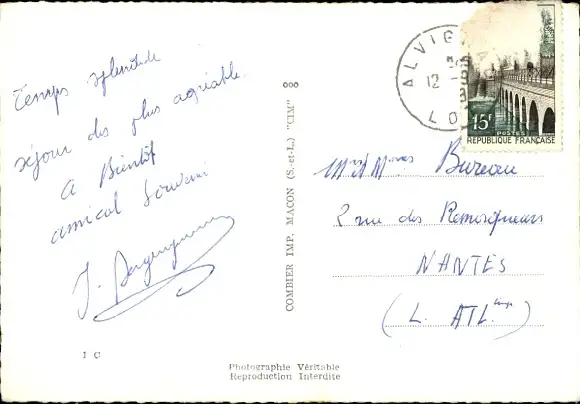 Temps splendide
séjour des plus agréable.
A Bientôt
amical souvenir
J.
1 C
COMBIER IMP. MACON (S.-et-L.) "CIM"
ALVIGN
12
LO
15F
POSTES
REPUBLIQUE FRANÇAISE
Bureau
2 rue des Remorqueurs
NANTES
(L. ATL.)
Photographie Véritable
Reproduction Interdite